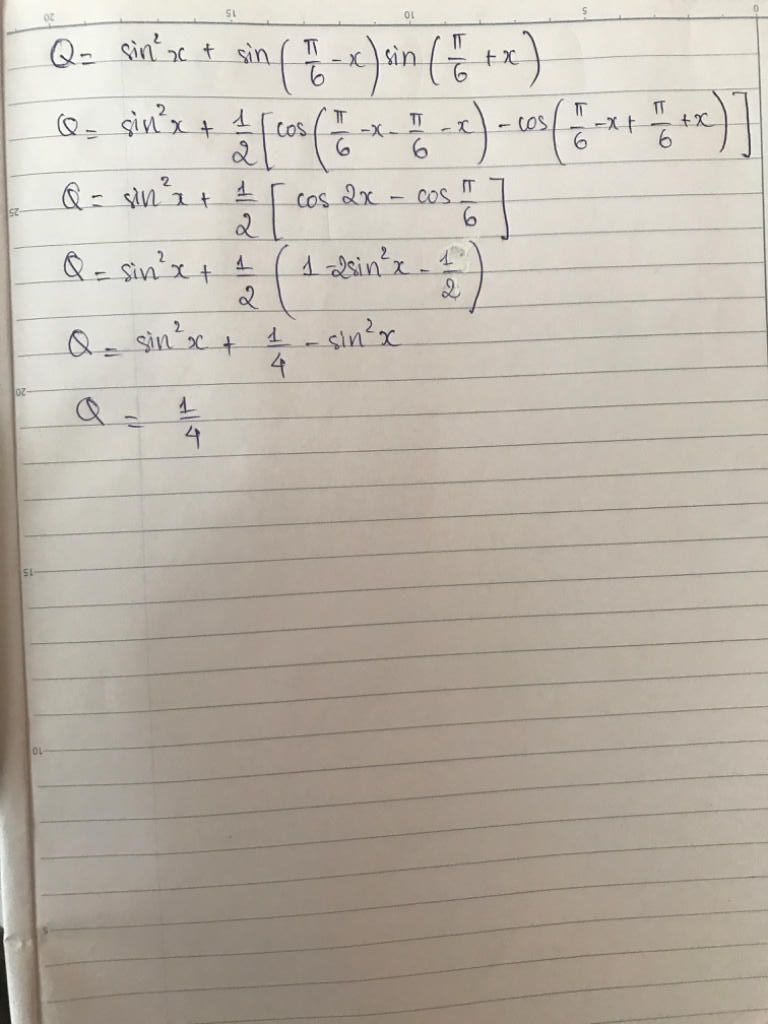 20 15 10 5 0
Q = sin²x + sin(π/6 - x) sin(π/6 + x)
Q = sin²x + 1/2 [cos(π/6 - x - π/6 - x) - cos(π/6 - x + π/6 + x)]
25
Q = sin²x + 1/2 [cos 2x - cos π/6]
Q = sin²x + 1/2 (1 - 2sin²x - 1/2)
Q = sin²x + 1/4 - sin²x
20
Q = 1/4
15
10
5